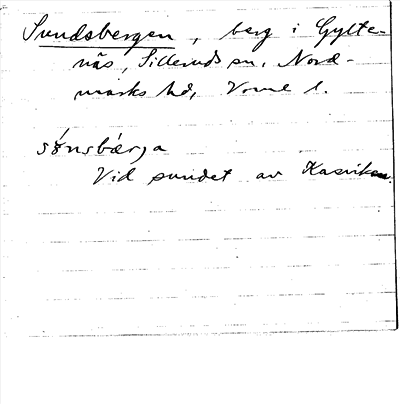 Sundsbergen, berg i Gylte-
näs, Sillerud sn, Nord-
marks hd, Vrml l.
sɤ́nsbǽrja
Vid sundet av Kasviken.